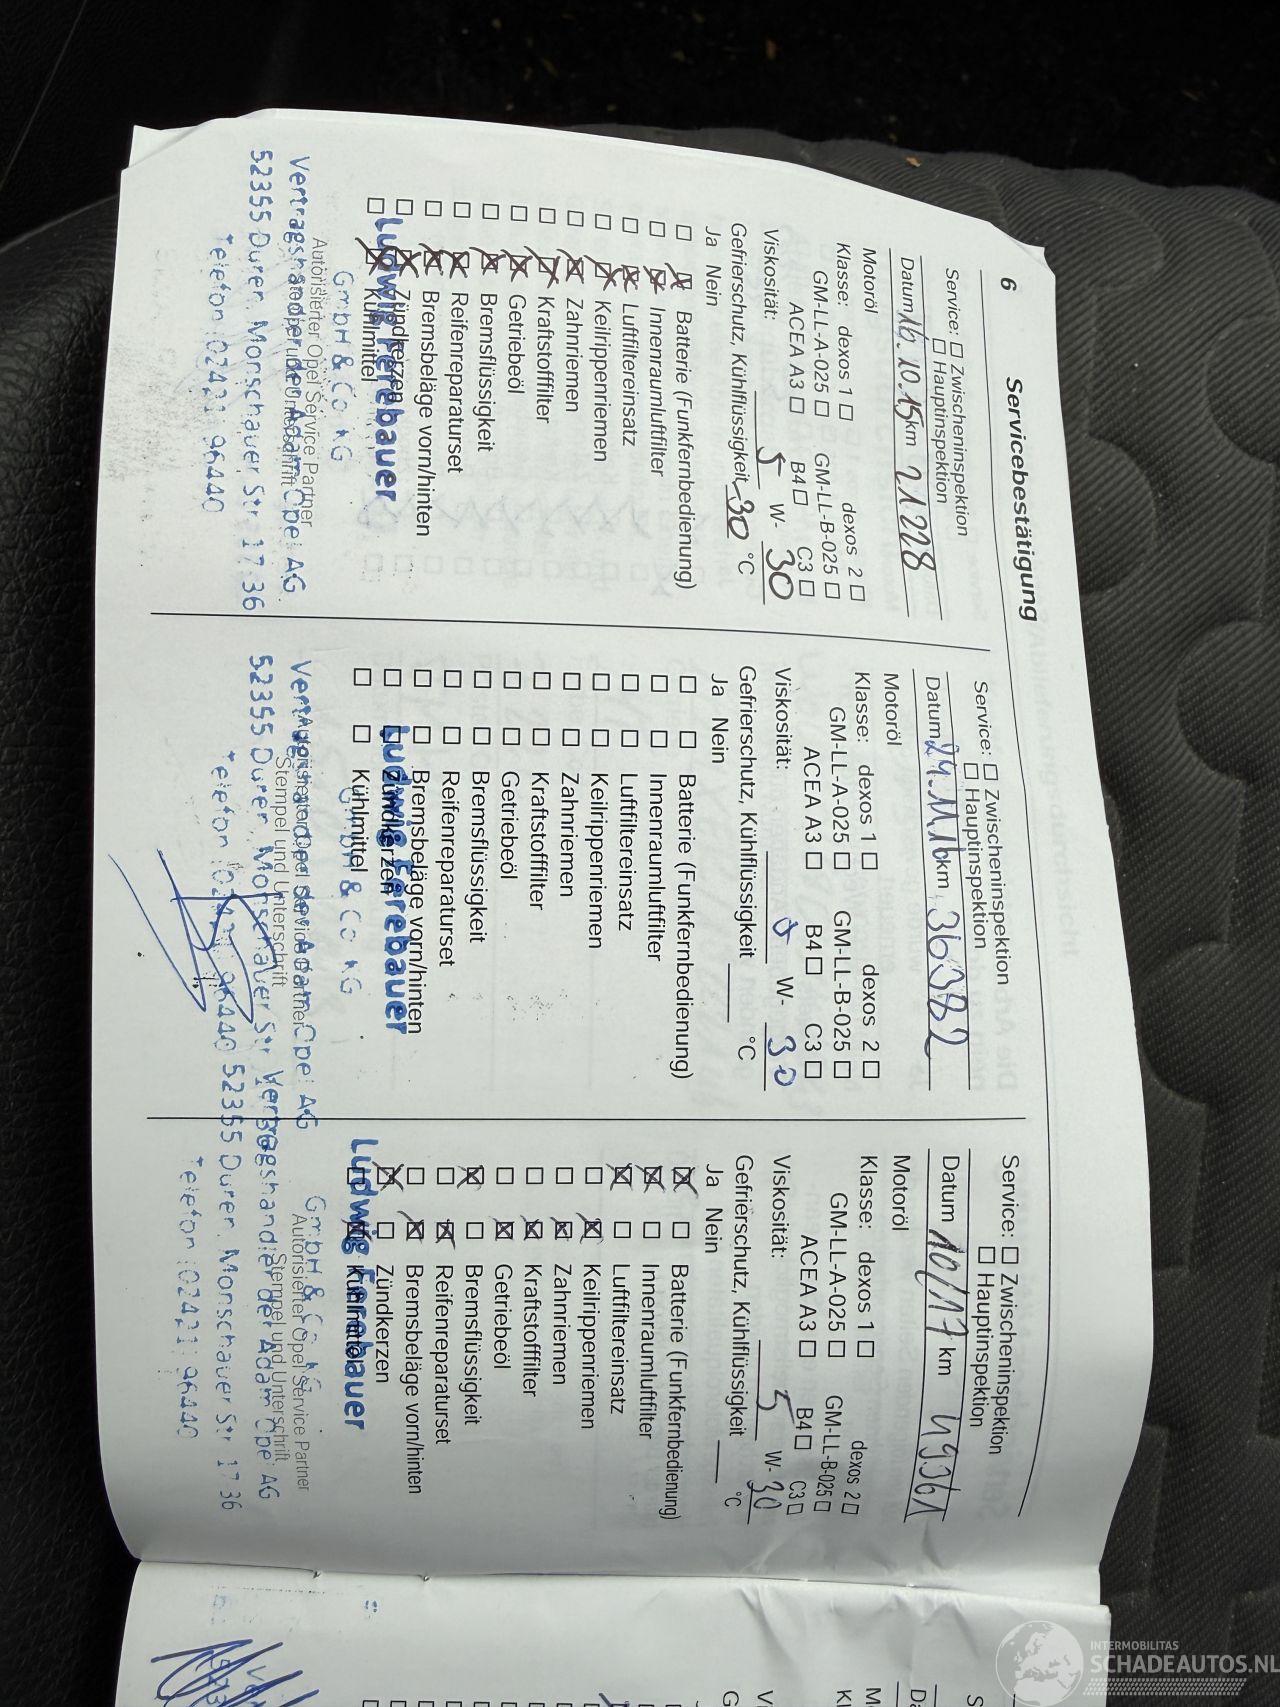 6 Servicebestätigung
Service: □ Zwischeninspektion
□ Hauptinspektion
Datum 16.10.15 km 21228
Motoröl
Klasse: dexos 1 □ dexos 2 □
GM-LL-A-025 □ GM-LL-B-025 □
ACEA A3 □ B4 □ C3 □
Viskosität: 5 W- 30
Gefrierschutz, Kühlflüssigkeit -30 °C
Ja Nein
□ ☒ Batterie (Funkfernbedienung)
□ ☒ Innenraumluftfilter
□ ☒ Luftfiltereinsatz
□ ☒ Keilrippenriemen
□ ☒ Zahnriemen
□ ☒ Kraftstofffilter
□ ☒ Getriebeöl
□ ☒ Bremsflüssigkeit
□ ☒ Reifenreparaturset
□ ☒ Bremsbeläge vorn/hinten
□ ☒ Zündkerzen
□ ☒ Kühlmittel
Ludwig Ferebauer
GmbH & Co KG
Autorisierter Opel Service Partner
Stempel und Unterschrift
Vertragshändler der Adam Opel AG
52355 Düren, Monschauer Str 17 36
Telefon 02421 96440
Service: □ Zwischeninspektion
□ Hauptinspektion
Datum 29.11.16 km 36382
Motoröl
Klasse: dexos 1 □ dexos 2 □
GM-LL-A-025 □ GM-LL-B-025 □
ACEA A3 □ B4 □ C3 □
Viskosität: W- 30
Gefrierschutz, Kühlflüssigkeit °C
Ja Nein
□ □ Batterie (Funkfernbedienung)
□ □ Innenraumluftfilter
□ □ Luftfiltereinsatz
□ □ Keilrippenriemen
□ □ Zahnriemen
□ □ Kraftstofffilter
□ □ Getriebeöl
□ □ Bremsflüssigkeit
□ □ Reifenreparaturset
□ □ Bremsbeläge vorn/hinten
□ □ Zündkerzen
□ □ Kühlmittel
Ludwig Ferebauer
GmbH & Co KG
Autorisierter Opel Service Partner
Stempel und Unterschrift
Vertragshändler der Adam Opel AG
52355 Düren, Monschauer Str
Telefon 02421 96440
Service: □ Zwischeninspektion
□ Hauptinspektion
Datum 10/17 km 49361
Motoröl
Klasse: dexos 1 □ dexos 2 □
GM-LL-A-025 □ GM-LL-B-025 □
ACEA A3 □ B4 □ C3 □
Viskosität: 5 W- 30
Gefrierschutz, Kühlflüssigkeit °C
Ja Nein
☒ □ Batterie (Funkfernbedienung)
☒ □ Innenraumluftfilter
☒ □ Luftfiltereinsatz
□ ☒ Keilrippenriemen
□ ☒ Zahnriemen
□ ☒ Kraftstofffilter
□ ☒ Getriebeöl
☒ □ Bremsflüssigkeit
□ ☒ Reifenreparaturset
□ ☒ Bremsbeläge vorn/hinten
☒ □ Zündkerzen
□ ☒ Kühlmittel
Ludwig Ferebauer
GmbH & Co KG
Autorisierter Opel Service Partner
Stempel und Unterschrift
Vertragshändler der Adam Opel AG
52355 Düren, Monschauer Str 17 36
Telefon 02421 96440
INTERMOBILITAS
SCHADEAUTOS.NL